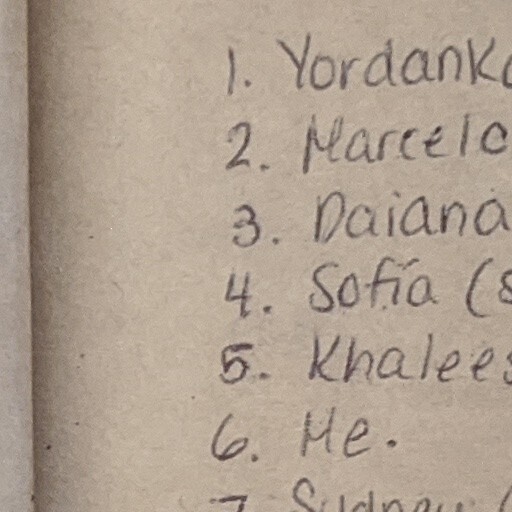 1. Yordank
2. Marcelo
3. Daiana
4. Sofía (s
5. Khalees
6. Me.
7 Sydney (